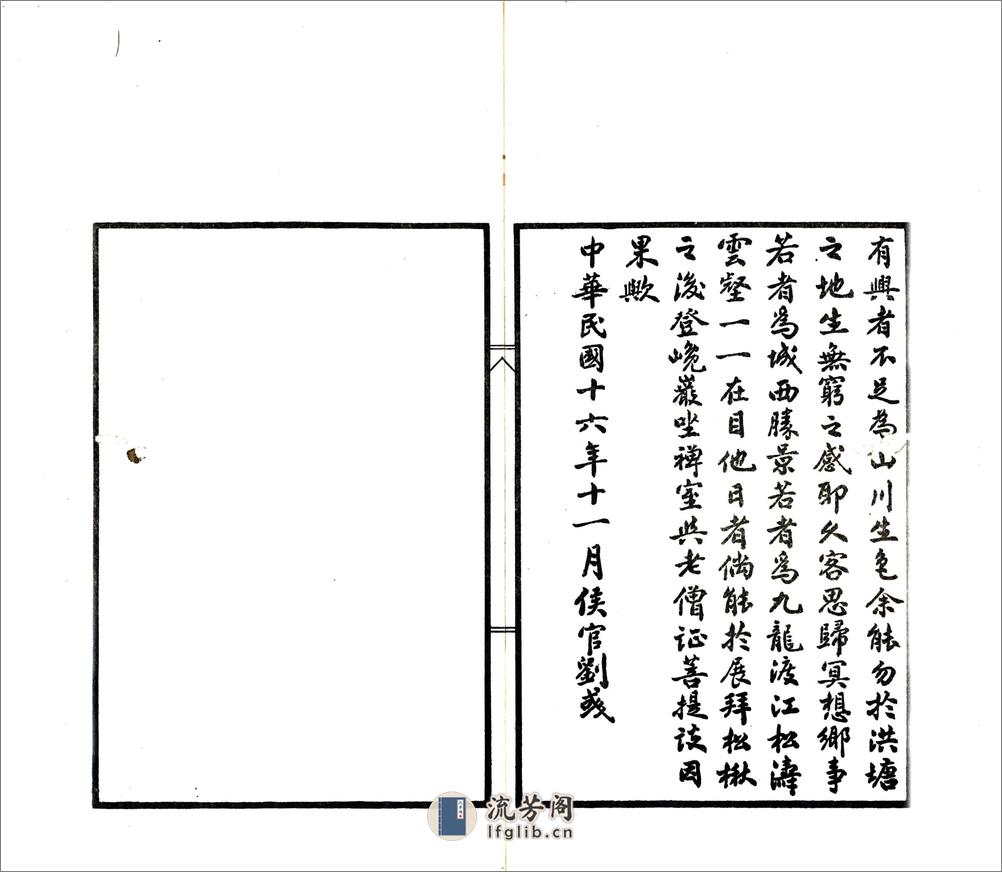 有興者不足為山川生色余能勿於洪塘
之地生無窮之感耶久客思歸冥想鄉事
若者為城西勝景若者為九龍渡江松濤
雲壑一一在目他日者倘能於展拜松楸
之後登巉巖坐禪室與老僧証菩提談因
果歟
中華民國十六年十一月侯官劉彧
流芳阁
lfglib.cn